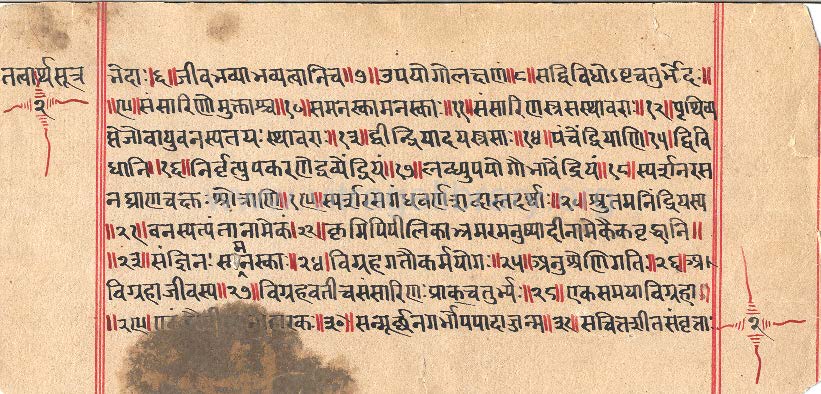 तत्वार्थसूत्र
२
भेदाः॥६॥जीवभव्याभव्यत्वानिच॥७॥उपयोगोलक्षणं॥८॥सद्विविधोऽष्टचतुर्भेदः॥
॥९॥संसारिणोमुक्ताश्च॥१०॥समनस्कामनस्काः॥११॥संसारिणस्त्रसस्थावराः॥१२॥पृथिव्य
प्तेजोवायुवनस्पतयःस्थावराः॥१३॥द्वीन्द्रियादयस्त्रसाः॥१४॥पंचेंद्रियाणि॥१५॥द्विवि
धानि॥१६॥निर्वृत्युपकरणेद्रव्येंद्रियं॥१७॥लब्ध्युपयोगौभावेंद्रियं॥१८॥स्पर्शनरस
नघ्राणचक्षुःश्रोत्राणि॥१९॥स्पर्शरसगंधवर्णशब्दास्तदर्थाः॥२०॥श्रुतमनिंद्रियस्य
॥२१॥वनस्पत्यंतानामेकं॥२२॥कृमिपिपीलिकाभ्रमरमनुष्यादीनामेकैकवृद्धानि॥
॥२३॥संज्ञिनःसमनस्काः॥२४॥विग्रहगतौकर्मयोगः॥२५॥अनुश्रेणिगतिः॥२६॥अ
विग्रहाजीवस्य॥२७॥विग्रहवतीचसंसारिणःप्राक्चतुर्भ्यः॥२८॥एकसमयाविग्रहा॥
॥२९॥ ॥३०॥सन्मूर्छनगर्भोपपादाज्जन्म॥३१॥सचित्तशीतसंवृताः
२